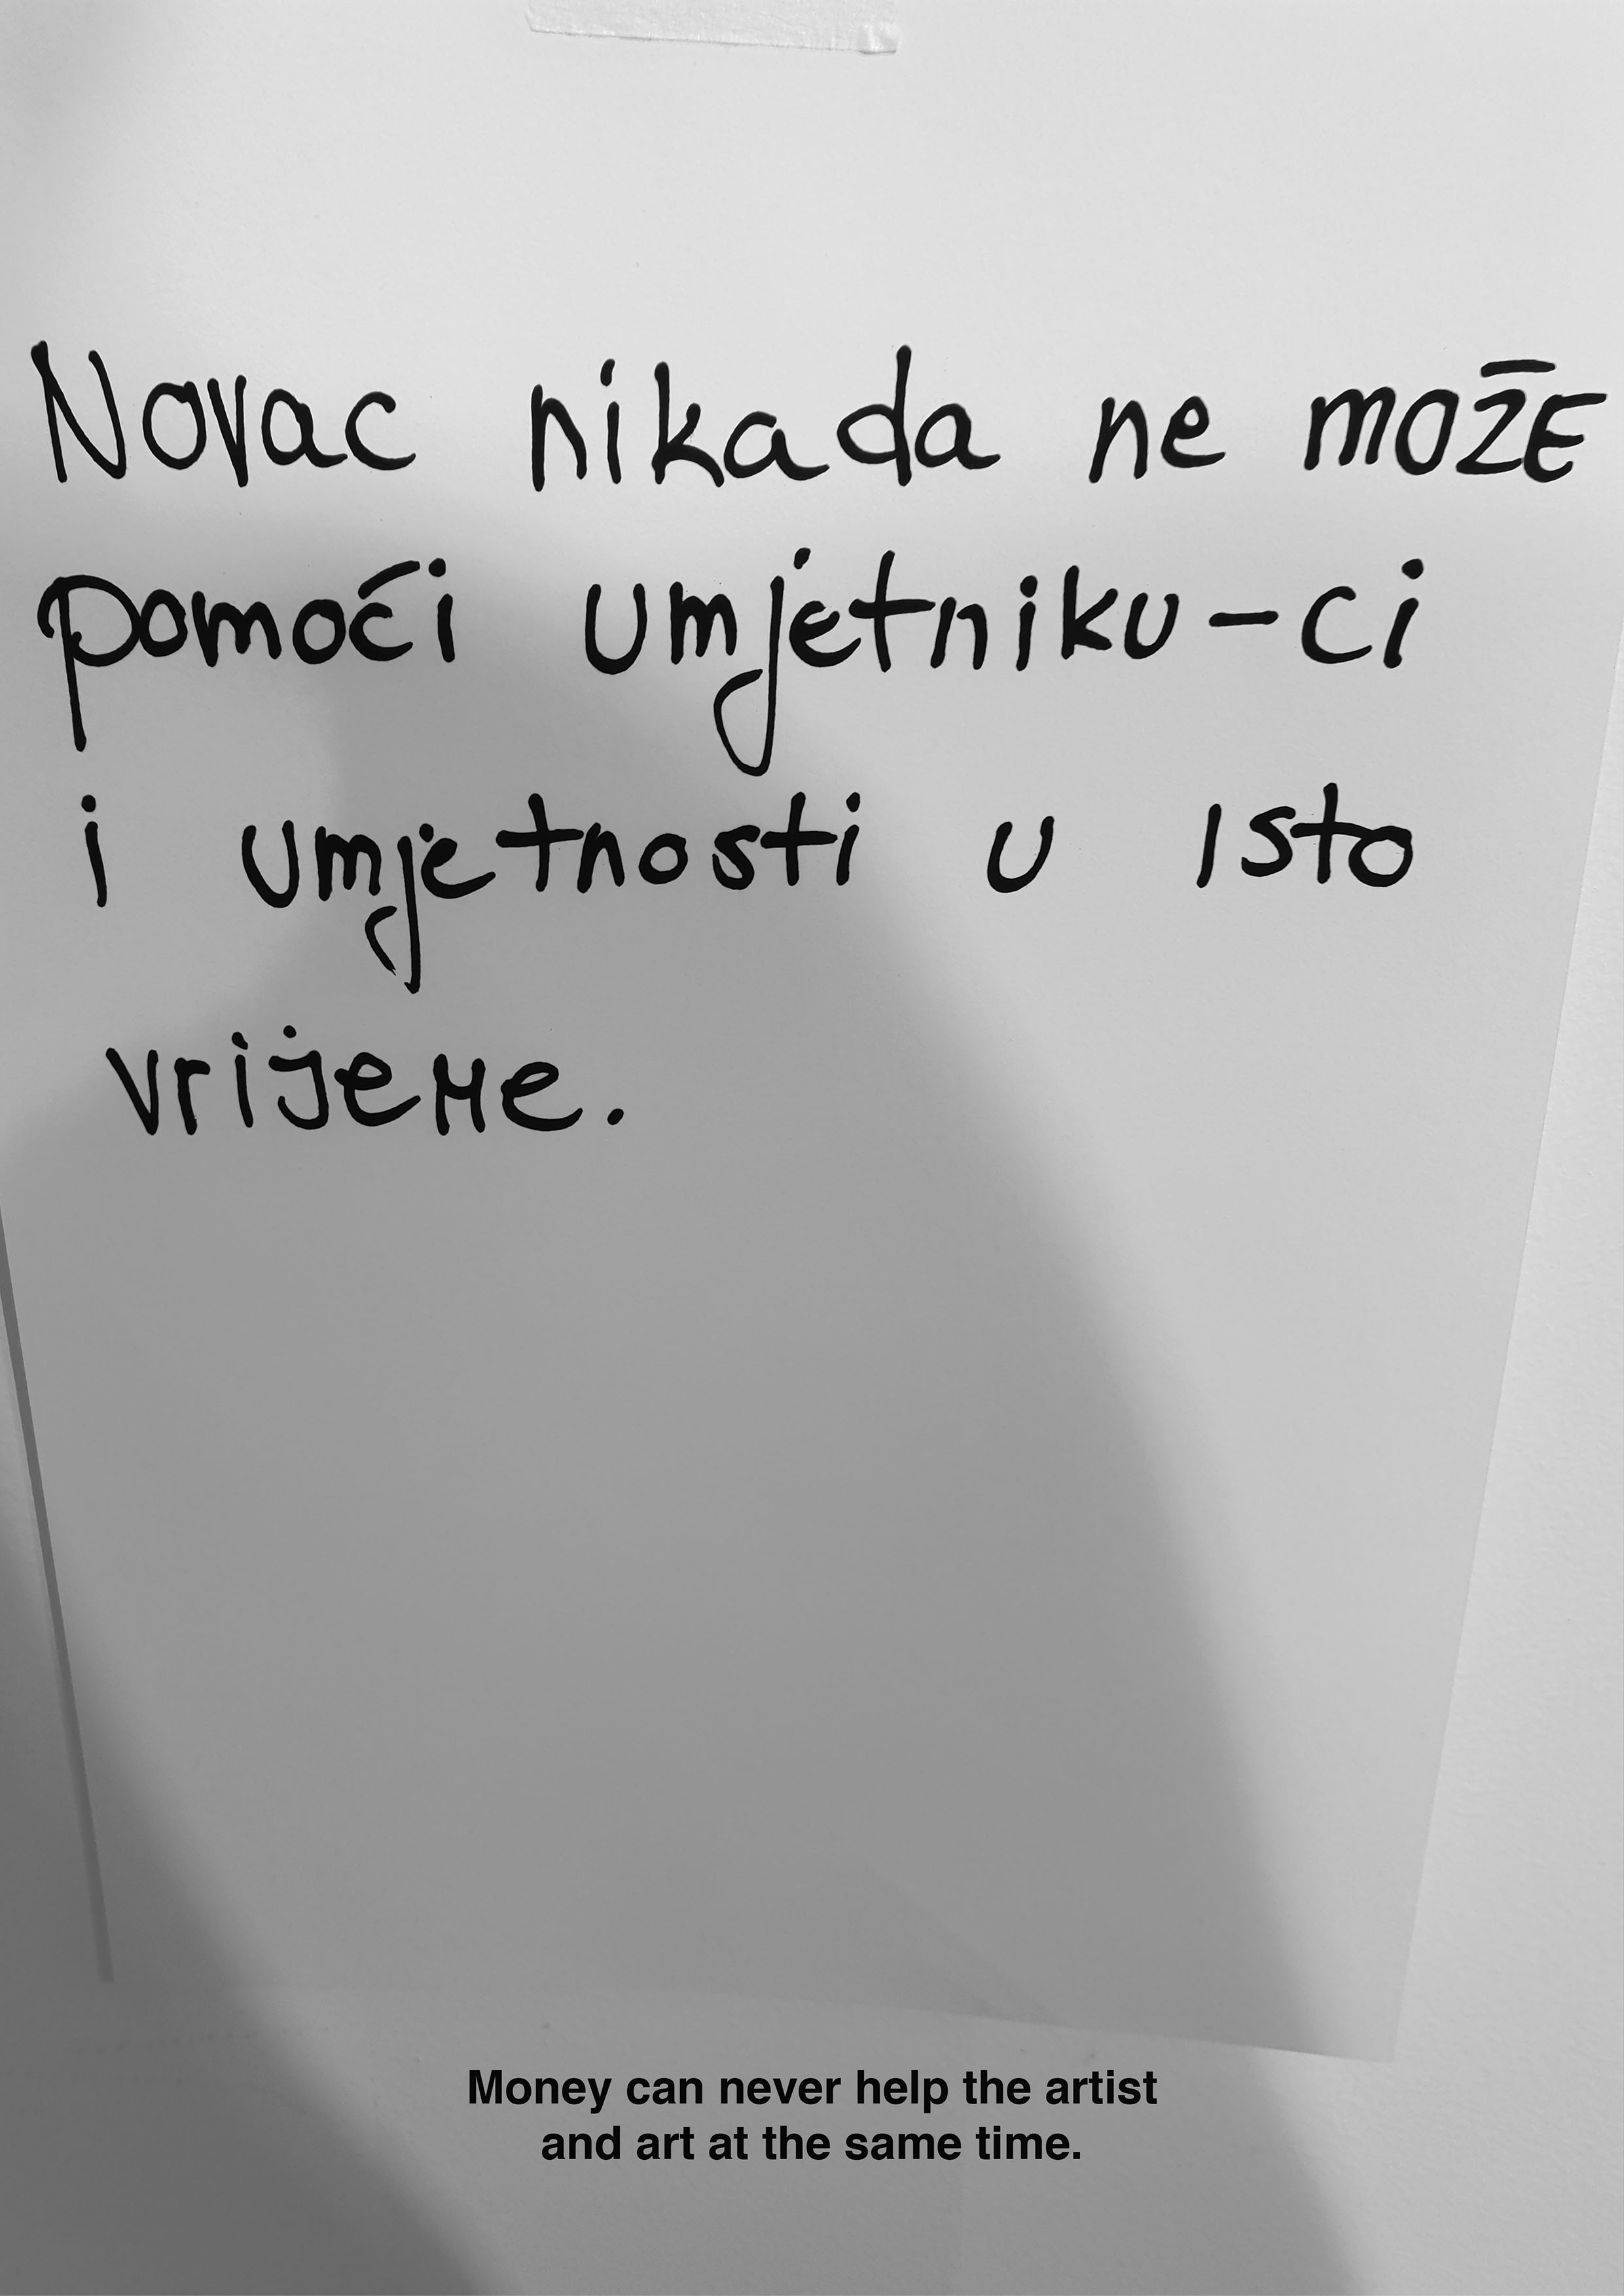 Novac nikada ne može
pomoći umjetniku-ci
i umjetnosti u isto
vrijeme.
Money can never help the artist
and art at the same time.